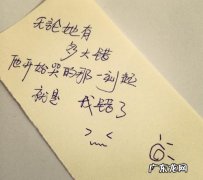 无论她有
多大错
从开始哭的那一刻起
就是 我错了
广东龙网